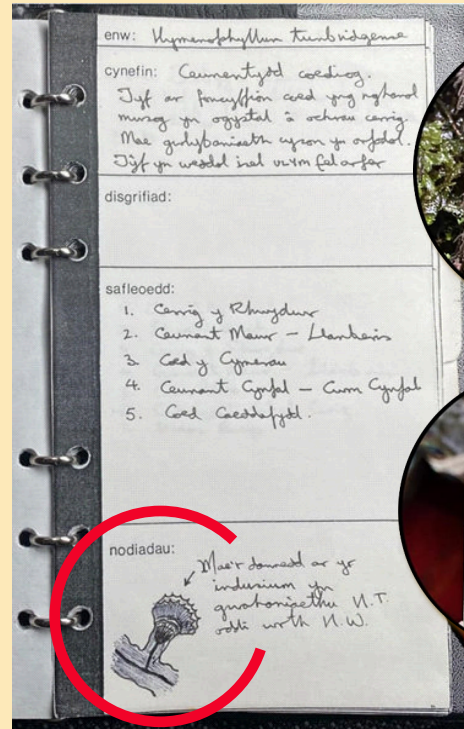 enw: Hymenophyllum tunbridgense
cynefin: Ceunentydd coediog.
Tyf ar foncyffion coed yng nghanol
mwsog yn ogystal â ochrau cerrig
Mae gwlybaniaeth cyson yn
Tyf yn weddol isel fel arfer
disgrifiad:
safleoedd:
1. Cerrig y Rhwydwr
2. Ceunant Mawr - Llanberis
3. Coed y Cymerau
4. Ceunant Cynfal - Cwm Cynfal
5. Coed
nodiadau:
Mae'r dannedd ar yr
indusium yn
gwahaniaethu H.T.
oddi wrth H.W.